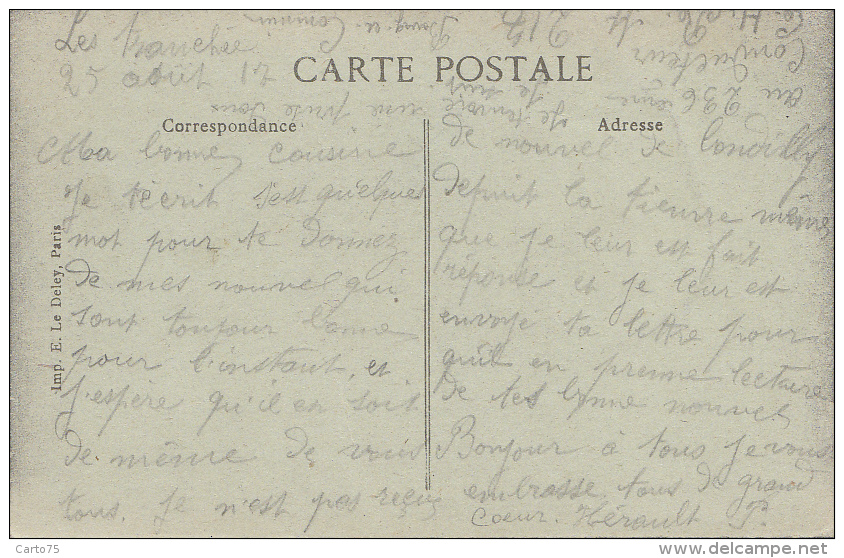 Les Tranchée
25 août 17
CARTE POSTALE
Correspondance
Adresse
Ma bonne cousine
Je t'écrit s'est quelques
mot pour te donnez
de mes nouvel qui
sont toujour bonne
pour l'instant, et
j'espère qu'il en soit
de même de vous
tous. Je n'est pas reçus
de nouvel de
depuit la tienne même
que je leur est fait
réponse et je leur est
envoyé ta lettre pour
qu'il en prenne lecture
de tes bonne nouvel
Bonjour à tous je vous
embrasse tous de grand
coeur. Hérault P.
Je t'envoie une
Je suis
au 236 ème
Conducteur
Imp. E. Le Deley, Paris
Carto75
delcampe.net